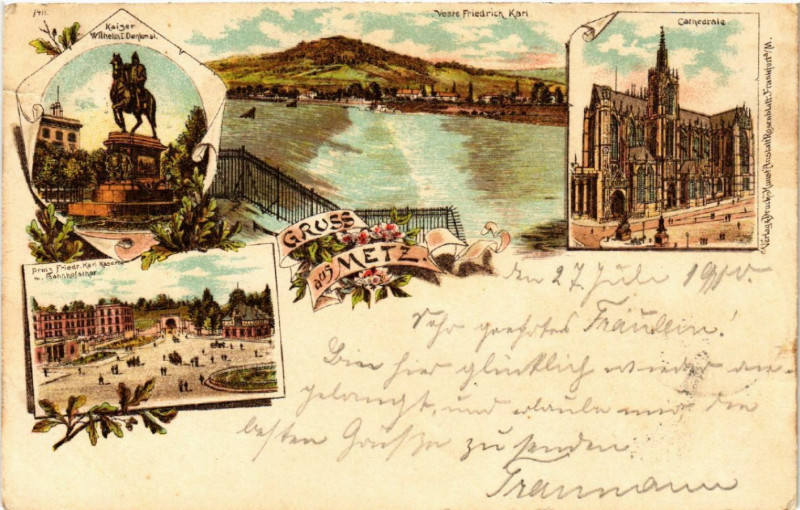 1411.
Kaiser
Wilhelm I Denkmal.
Veste Friedrich Karl
Cathedrale
Prinz Friedr. Karl Kaserne
u. Bahnhofsthor.
GRUSS
aus METZ.
Verlag u. Druck v. Kunst-Anstalt Rosenblatt, Frankfurt a/M.
den 27. Juli 1900.
Sehr geehrtes Fräulein!
Bin hier glücklich wieder an-
gelangt, und erlaube mir die
besten Grüße zu senden
Traumann